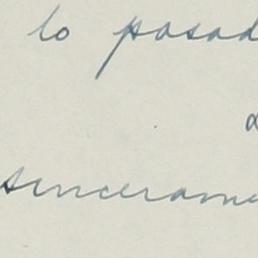 lo posad
sincerame